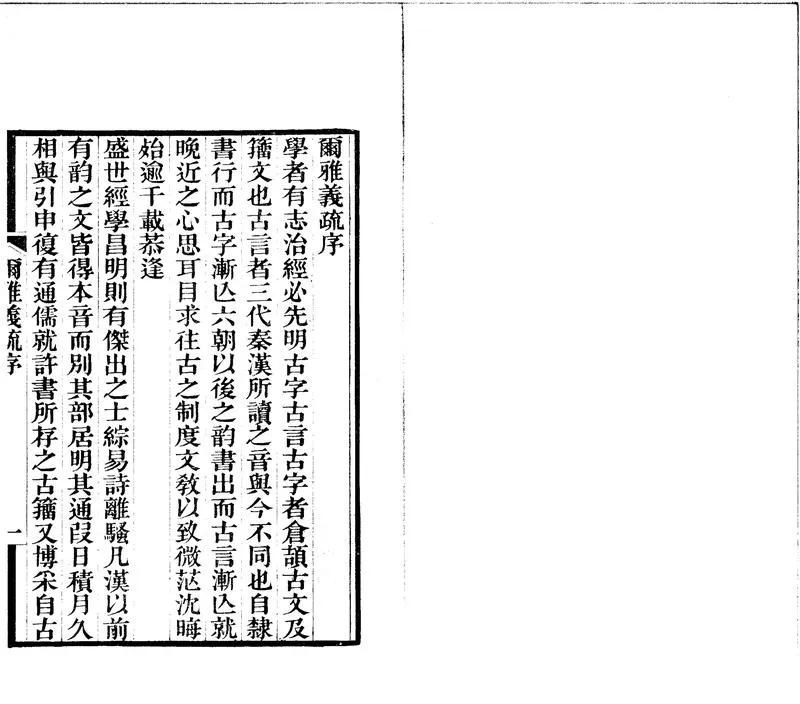 爾雅義疏序
學者有志治經必先明古字古言古字者倉頡古文及
籀文也古言者三代秦漢所讀之音與今不同也自隸
書行而古字漸亾六朝以後之韵書出而古言漸亾就
晚近之心思耳目求往古之制度文敎以致微茫沈晦
始逾千載恭逢
盛世經學昌明則有傑出之士綜易詩離騷凡漢以前
有韵之文皆得本音而別其部居明其通叚日積月久
相與引申復有通儒就許書所存之古籀又博采自古
爾雅義疏序
一